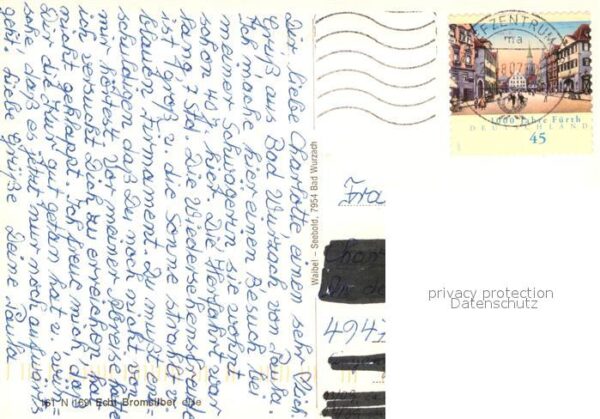 Dir liebe Charlotte, einen sehr lieben
Gruß aus Bad Wurzach von Paula.
Ich mache hier einen Besuch bei
meiner Schwägerin sie wohnt
schon hier. Die Herfahrt war
lang 7 Std. Die Wiedersehensfreude
ist groß u. die Sonne strahlt vom
blauen Firmament. Du mußt ent=
schuldigen daß Du noch nicht von
mir hörtest. Vor meiner Abreise habe
ich versucht Dich zu erreichen hat
nicht geklappt. Ich freue mich,
Dir die Kur gut getan hat u.
sche daß es jetzt nur noch aufwärts
geht. Liebe Grüße Deine Paula
Waibel – Seebold, 7954 Bad Wurzach
161 N 169 Echt Bromsilber
EFZENTRUM
1000 Jahre Fürth
DEUTSCHLAND
45
Fra
494
privacy protection
Datenschutz